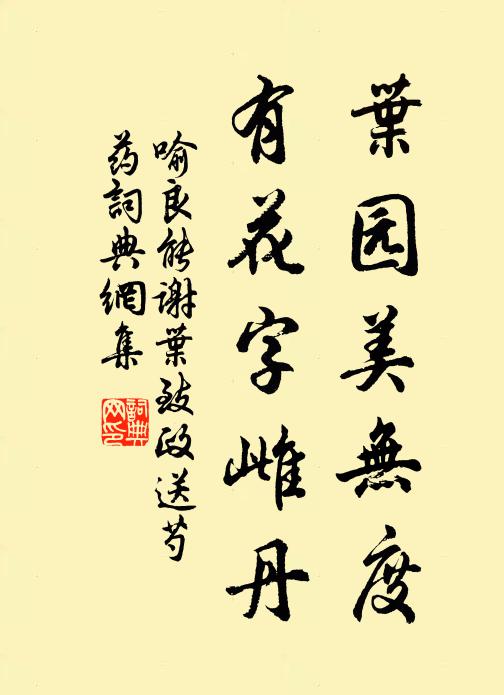 葉园美無度
有花字雌丹
喻良能谢葉致政送芍
药詞典網集
詞典网印